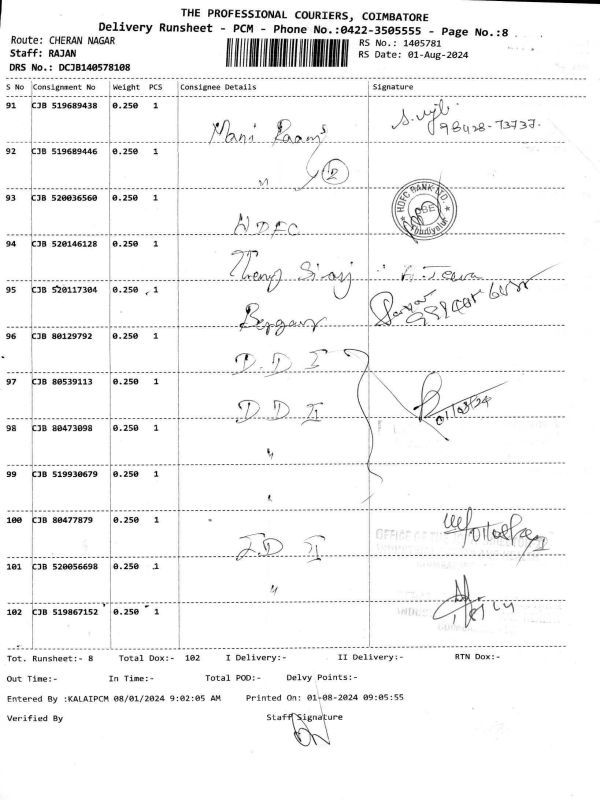 THE PROFESSIONAL COURIERS, COIMBATORE
Delivery Runsheet - PCM - Phone No.:0422-3505555 - Page No.:8
Route: CHERAN NAGAR
RS No.: 1405781
Staff: RAJAN
RS Date: 01-Aug-2024
DRS No.: DCJB140578108
S No Consignment No Weight PCS Consignee Details Signature
91 CJB 519689438 0.250 1
Mani
98428-73737.
92 CJB 519689446 0.250 1
" 2
93 CJB 520036560 0.250 1
HDFC
HDFC BANK LTD.
94 CJB 520146128 0.250 1
95 CJB 520117304 0.250 1
96 CJB 80129792 0.250 1
D.D I
97 CJB 80539113 0.250 1
D D I
01/08/24
98 CJB 80473098 0.250 1
"
99 CJB 519930679 0.250 1
"
100 CJB 80477879 0.250 1
I.D I
101 CJB 520056698 0.250 1
"
102 CJB 519867152 0.250 1
Tot. Runsheet:- 8 Total Dox:- 102 I Delivery:- II Delivery:- RTN Dox:-
Out Time:- In Time:- Total POD:- Delvy Points:-
Entered By :KALAIPCM 08/01/2024 9:02:05 AM Printed On: 01-08-2024 09:05:55
Verified By Staff Signature